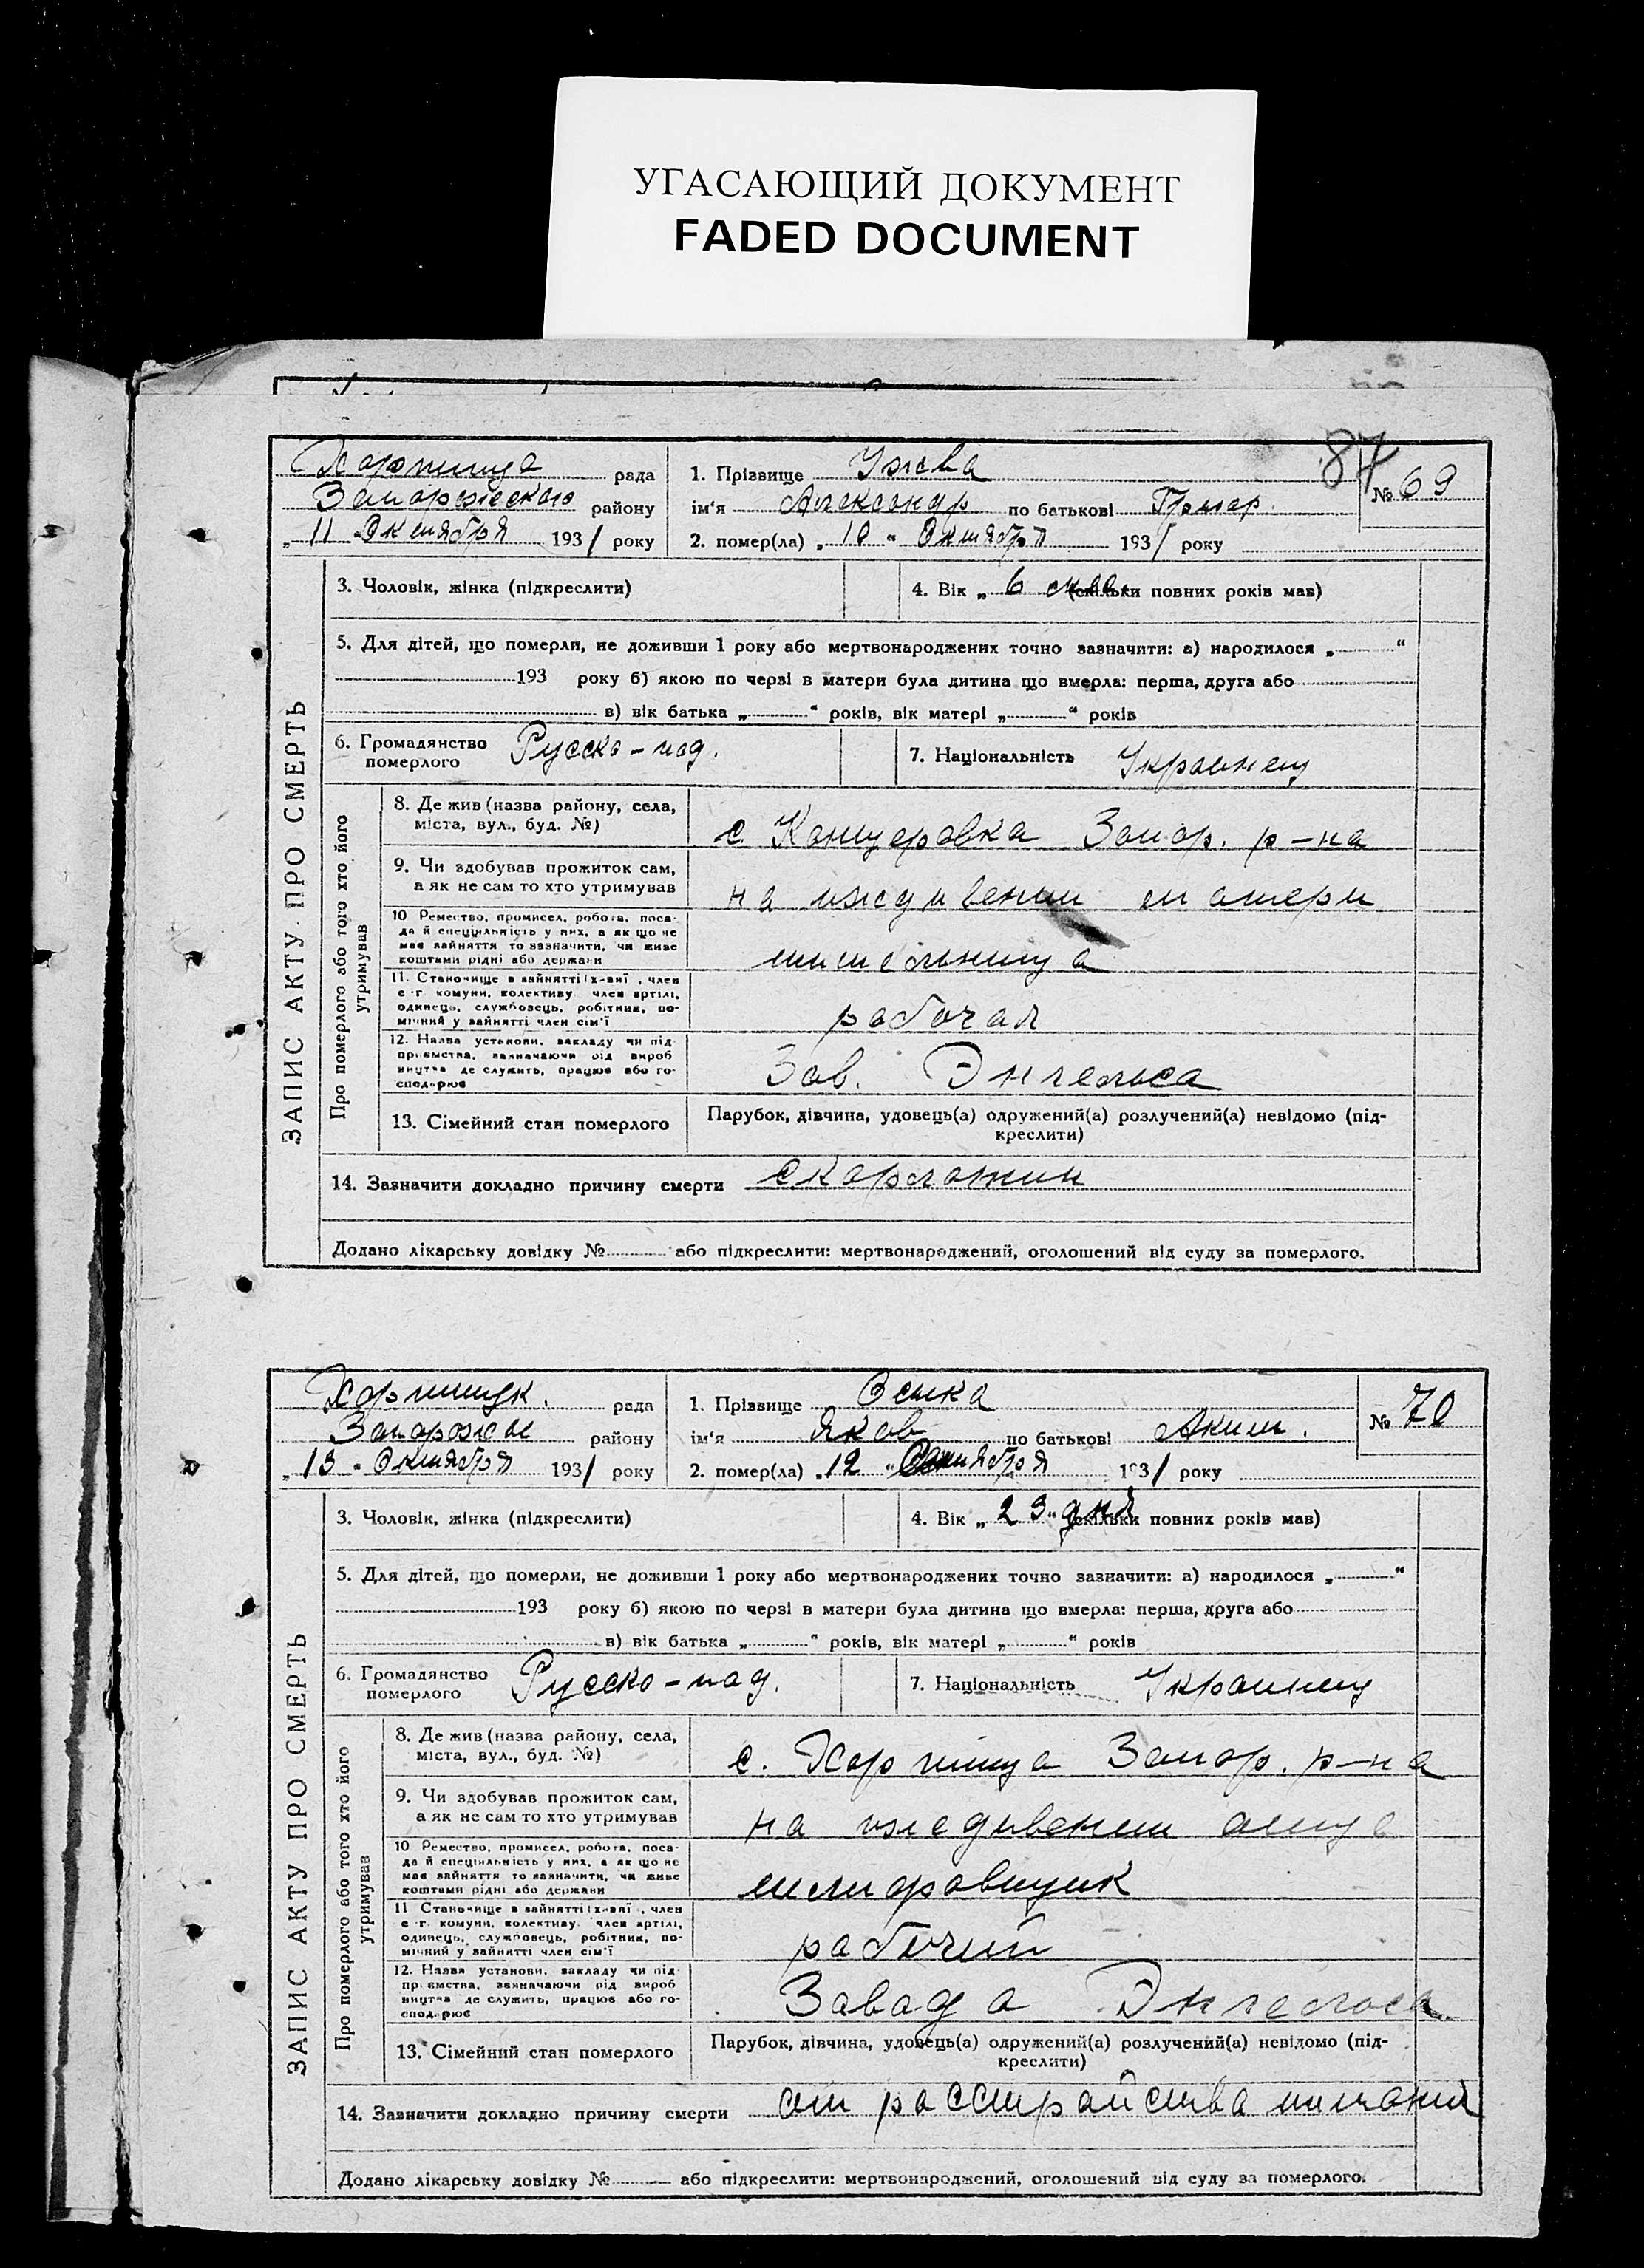 УГАСАЮЩИЙ ДОКУМЕНТ
FADED DOCUMENT
87
Хортица рада
1. Прізвище
№ 69
Запорожского району
ім'я Александр по батькові Григор.
„ 11 " Октября 1931 року
2. помер(ла) „ 10 " Октября 1931 року
ЗАПИС АКТУ ПРО СМЕРТЬ
3. Чоловік, жінка (підкреслити)
4. Вік „ 6 (скільки повних років мав)
5. Для дітей, що померли, не доживши 1 року або мертвонароджених точно зазначити: а) народилося „ "
193 року б) якою по черзі в матери була дитина що вмерла: перша, друга або
в) вік батька „ " років, вік матері „ " років
6. Громадянство померлого Русско-под.
7. Національність Украинец
Про померлого або того хто його утримував
8. Де жив (назва району, села,
міста, вул., буд. №)
с. Канцеровка Запор. р-на
9. Чи здобував прожиток сам,
а як не сам то хто утримував
на иждивении матери
10 Ремество, промисел, робота, поса-
да й спеціяльність у них, а як що не
має зайняття то зазначити, чи живе
коштами рідні або держави
11. Становище в зайнятті , член
с.-г. комуни, колективу член артілі,
одинець, службовець, робітник, по-
мічний у зайнятті член сім'ї
рабочая
12. Назва установи, закладу чи під-
приємства, зазначаючи від вироб
ництва де служить, працює або го-
сподарює
Зав. Энгельса
13. Сімейний стан померлого
Парубок, дівчина, удовець(а) одружений(а) розлучений(а) невідомо (під-
креслити)
14. Зазначити докладно причину смерти скарлатин
Додано лікарську довідку № або підкреслити: мертвонароджений, оголошений від суду за померлого.
Хортицк. рада
1. Прізвище
№ 70
Запорожск району
ім'я Яков по батькові Аким.
„ 13 " Октября 1931 року
2. помер(ла) „ 12 " Октября 1931 року
ЗАПИС АКТУ ПРО СМЕРТЬ
3. Чоловік, жінка (підкреслити)
4. Вік „ 23 " дня (скільки повних років мав)
5. Для дітей, що померли, не доживши 1 року або мертвонароджених точно зазначити: а) народилося „ "
193 року б) якою по черзі в матери була дитина що вмерла: перша, друга або
в) вік батька „ " років, вік матері „ " років
6. Громадянство померлого Русско-под.
7. Національність Украинец
Про померлого або того хто його утримував
8. Де жив (назва району, села,
міста, вул., буд. №)
с. Хортица Запор. р-на
9. Чи здобував прожиток сам,
а як не сам то хто утримував
на иждивении отца
10 Ремество, промисел, робота, поса-
да й спеціяльність у них, а як що не
має зайняття то зазначити, чи живе
коштами рідні або держави
шлифовщик
11 Становище в зайнятті , член
с.-г. комуни, колективу член артілі,
одинець, службовець, робітник, по-
мічний у зайнятті член сім'ї
рабочий
12. Назва установи, закладу чи під-
приємства, зазначаючи від вироб
ництва де служить, працює або го-
сподарює
Завода Энгельса
13. Сімейний стан померлого
Парубок, дівчина, удовець(а) одружений(а) розлучений(а) невідомо (під-
креслити)
14. Зазначити докладно причину смерти от расстрайства питания
Додано лікарську довідку № або підкреслити: мертвонароджений, оголошений від суду за померлого.